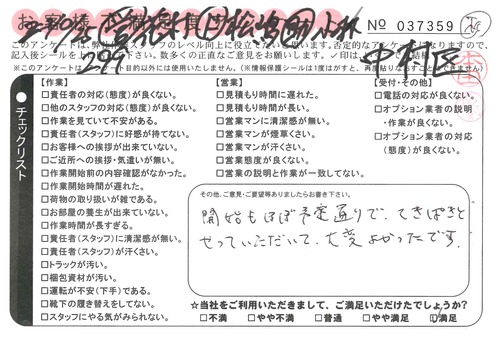 No 037359
このアンケートは、弊社
記入後シールを上
※このアンケートは
チェックリスト
【作業】
□責任者の対応(態度)が良くない。
□他のスタッフの対応(態度)が良くない。
□作業を見ていて不安がある。
□責任者(スタッフ)に好感が持てない。
□お客様への挨拶が出来ていない。
□ご近所への挨拶・気遣いが無い。
□作業開始前の内容確認がなかった。
□作業開始時間が遅れた。
□荷物の取り扱いが雑である。
□お部屋の養生が出来ていない。
□作業時間が長すぎる。
□責任者(スタッフ)に清潔感が無い。
□責任者(スタッフ)が汗くさい。
□トラックが汚い。
□梱包資材が汚い。
□運転が不安(下手)である。
□靴下の履き替えをしてない。
□スタッフにやる気がみられない。
【営業】
□見積もり時間に遅れた。
□見積もり時間が長い。
□営業マンに清潔感が無い。
□営業マンが煙草くさい。
□営業マンが汗くさい。
□営業態度が良くない。
□営業の説明と作業が一致してない。
【受付・その他】
□電話の対応が良くない。
□オプション業者の説明
・作業が良くない。
□オプション業者の対応
(態度)が良くない。
その他、ご意見・ご要望等ありましたらお書き下さい。
開始もほぼ予定通りで、てきぱきと
せっていいただいて、大変よかったです。
☆当社をご利用いただきまして、ご満足いただけたでしょうか?
□不満 □やや不満 □普通 □やや満足 ☑満足